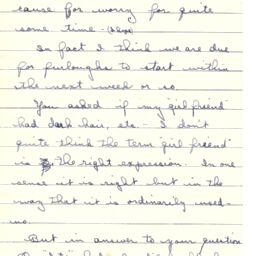 cause for worry for quite
some time - (I hope)
In fact I think we are due
for furloughs to start within
the next week or so.
You asked if my "girl friend"
had dark hair, etc. - I don't
quite think the term "girl friend"
is the right expression. In one
sense it is right but in the
way that it is ordinarily used -
no.
But in answer to your question